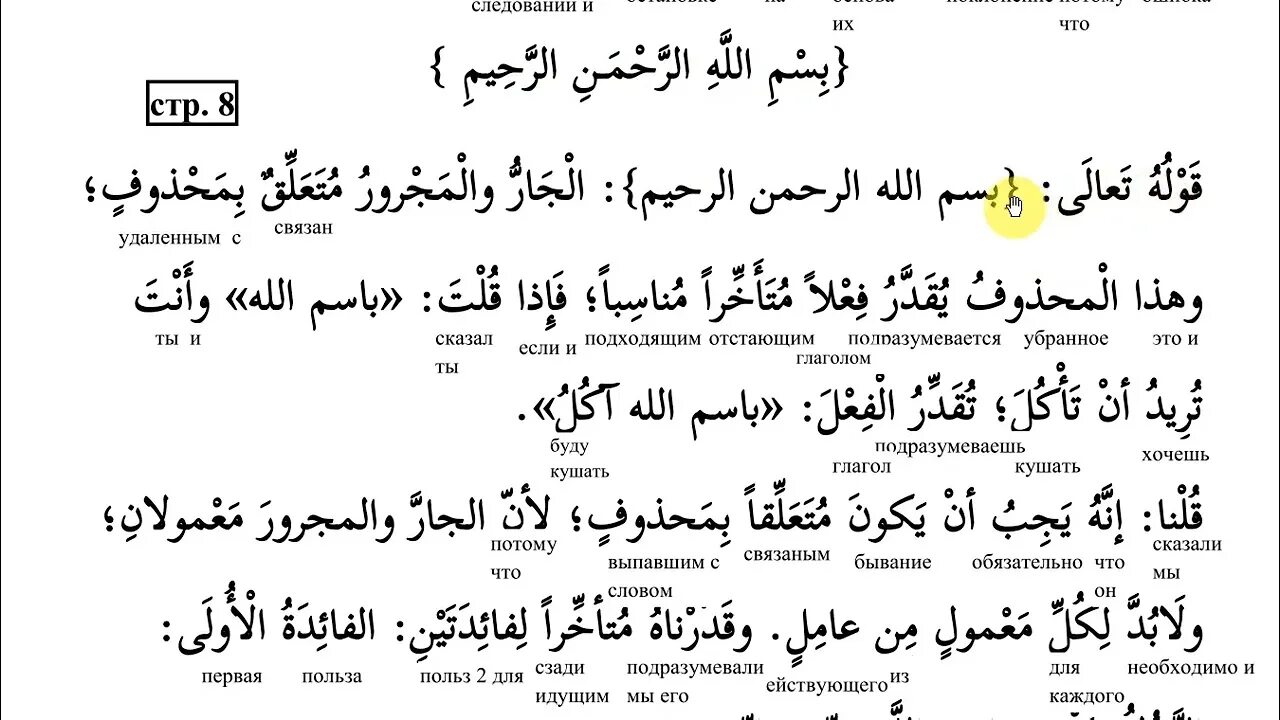 следовании и
их
что
{بِسْمِ اللَّهِ الرَّحْمَنِ الرَّحِيمِ }
стр. 8
قَوْلُهُ تَعالَى: {بسم الله الرحمن الرحيم}: الْجَارُّ والْمَجْرورُ مُتَعَلِّقٌ بِمَحْذوفٍ؛
удаленным с связан
وهذا الْمحذوفُ يُقَدَّرُ فِعْلاً مُتَأَخِّراً مُناسِباً؛ فَإِذا قُلْتَ: «باسم الله» وأَنْتَ
ты и сказал если и подходящим отстающим подразумевается убранное это и
ты глаголом
تُرِيدُ أنْ تَأْكُلَ؛ تُقَدِّرُ الْفِعْلَ: «باسم الله آكُلُ».
буду подразумеваешь хочешь
кушать глагол кушать
قُلْنا: إنَّهُ يَجِبُ أنْ يَكونَ مُتَعَلِّقاً بِمَحذوفٍ؛ لأنّ الجارَّ والمجرورَ مَعْمولانِ؛
потому выпавшим с связаным бывание обязательно что сказали
что словом он мы
ولَابُدَّ لِكُلِّ مَعْمولٍ مِن عامِلٍ. وقَدَّرْناهُ مُتأخِّراً لِفائِدَتَيْنِ: الفائِدَةُ الْأُولَى:
первая польза польз 2 для сзади подразумевали ействующего из для необходимо и
идущим мы его каждого